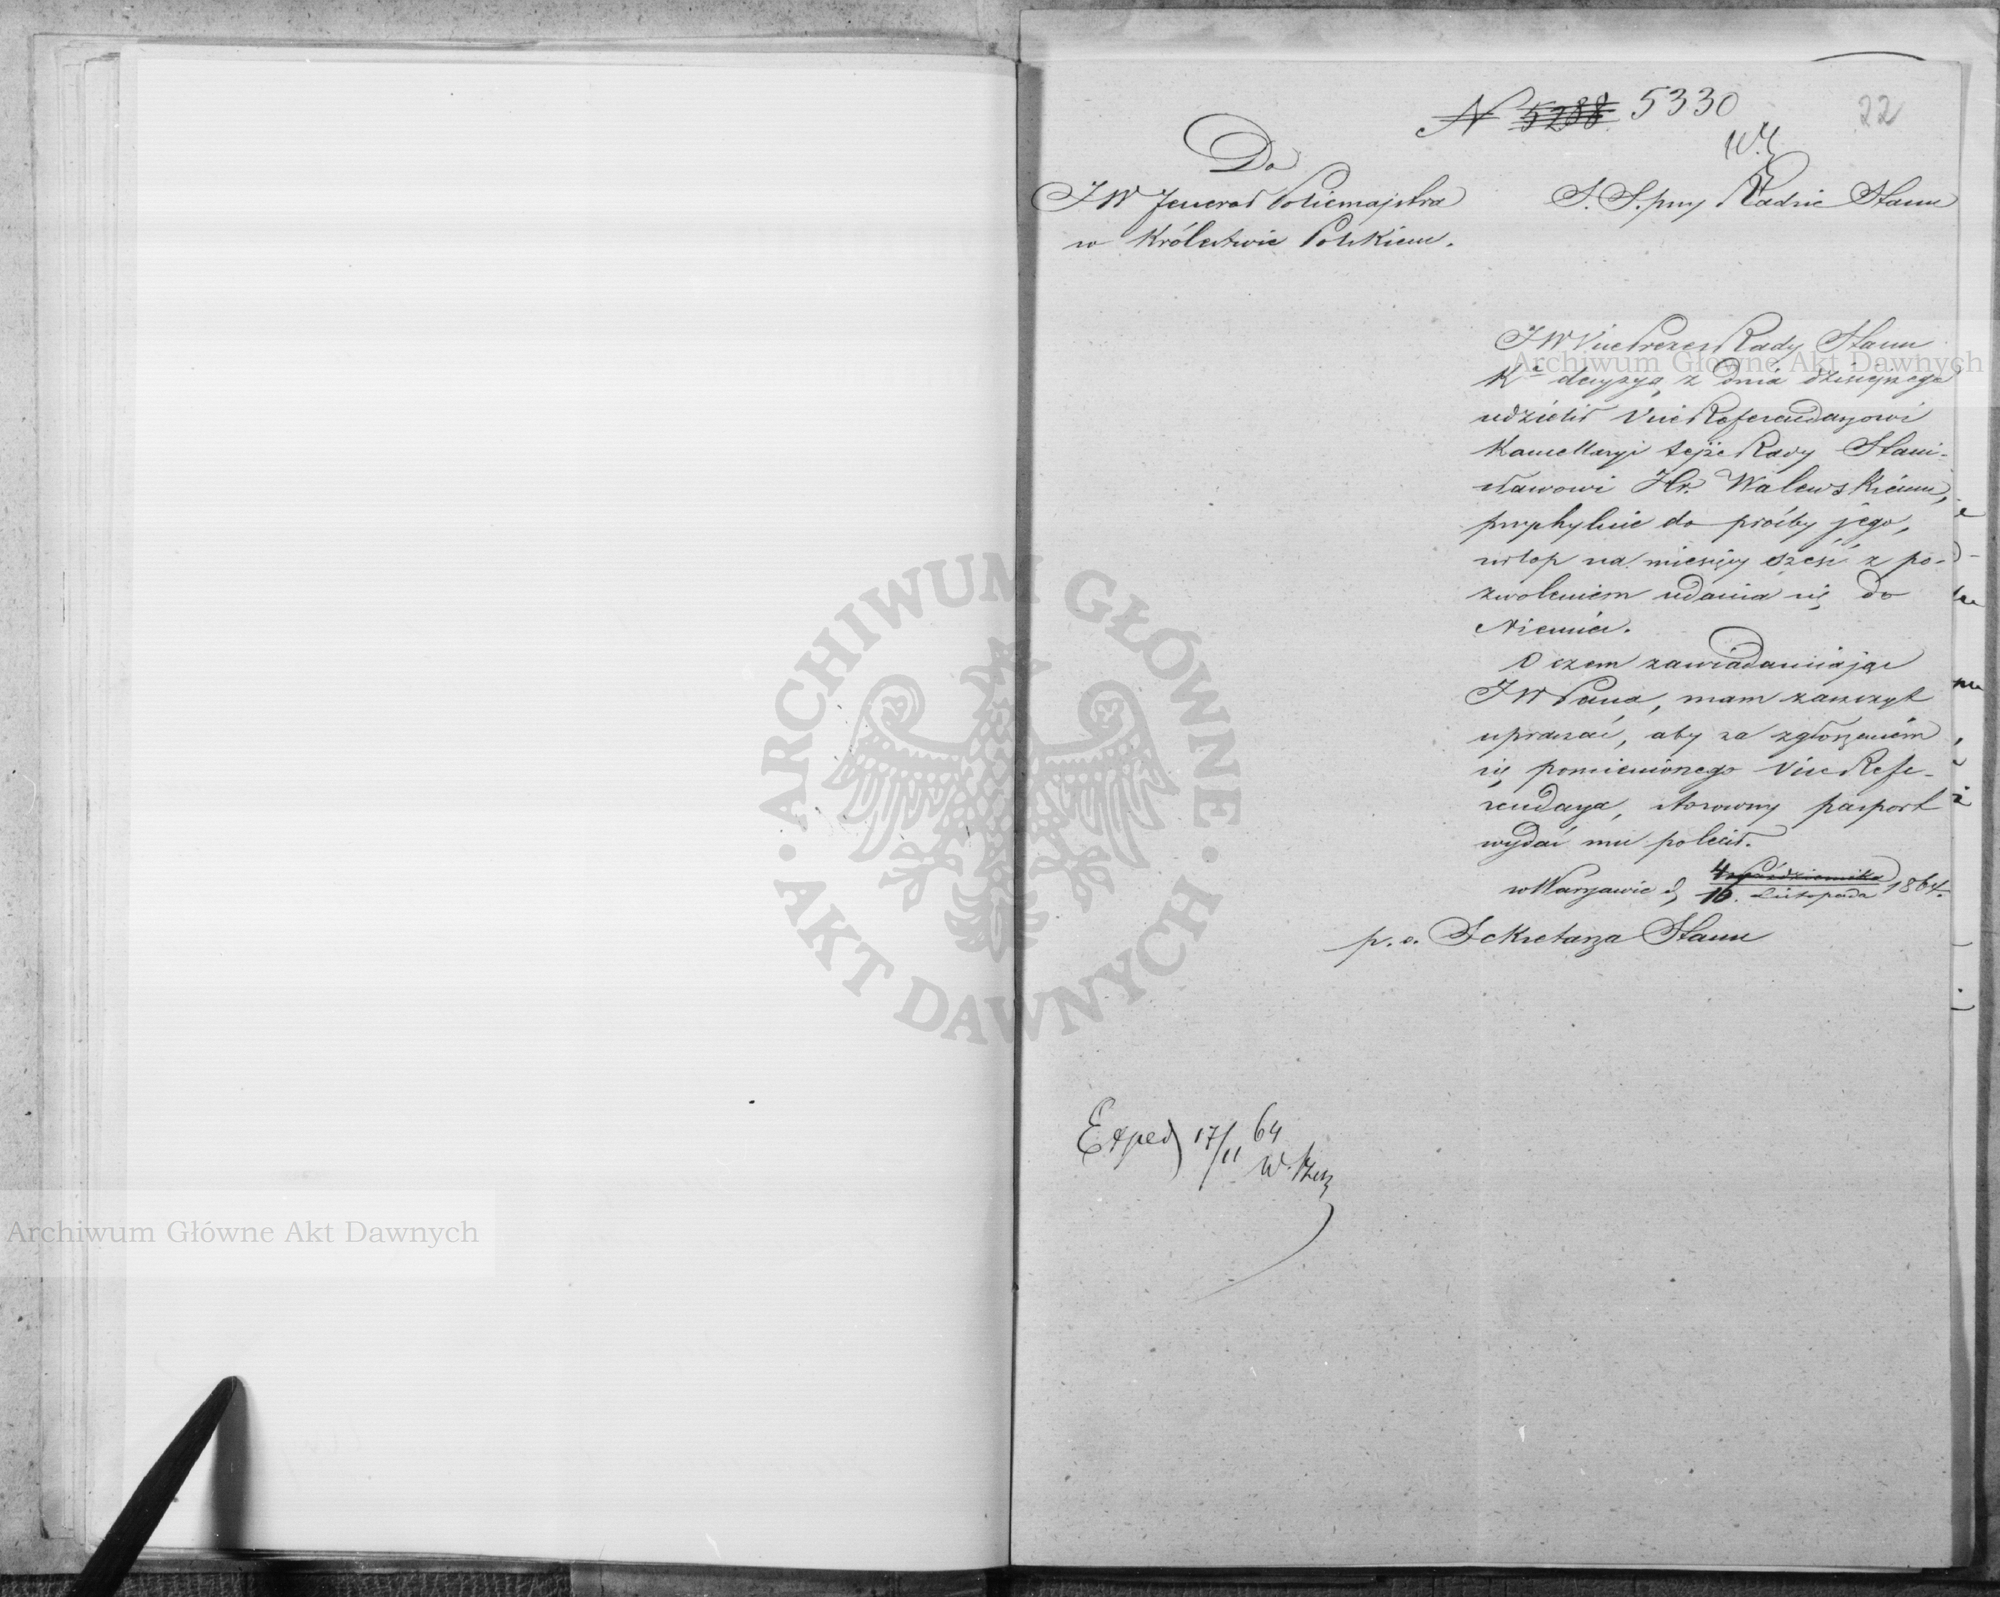 N 5288 5330
22
Do
JW Jenerał Policmajstra
w Królestwie Polskiem.
S. S. przy Radzie Stanu
JW Vice Prezes Rady Stanu
Kr decyzyą z dnia dzisiejszego
udzielił Vice Referendarzowi
Kancellaryi tejże Rady Stani-
sławowi Hr. Walewskiemu,
przychylnie do prośby jego,
urlop na miesięcy sześć z po-
zwoleniem udania się do
Niemiec.
O czem zawiadamiając
JW Pana, mam zaszczyt
upraszać, aby za zgłoszeniem
się pomienionego Vice Refe-
rendarza, stosowny pasport
wydać mu polecił.
w Warszawie d. 4 Października
16. Listopada 1864.
p. o. Sekretarza Stanu
Exped 17/11 64
Archiwum Główne Akt Dawnych
Archiwum Główne Akt Dawnych
ARCHIWUM GŁÓWNE
AKT DAWNYCH